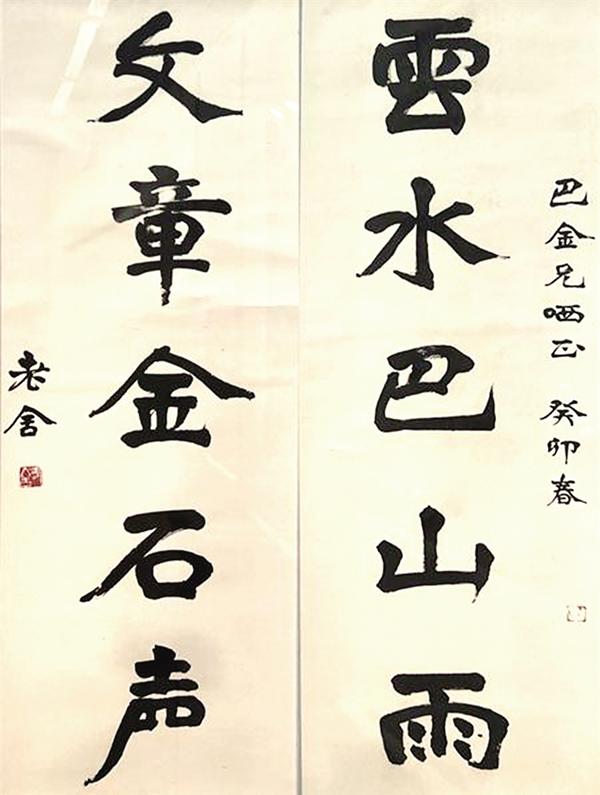 巴金兄哂正 癸卯春
雲水巴山雨
文章金石声
老舍